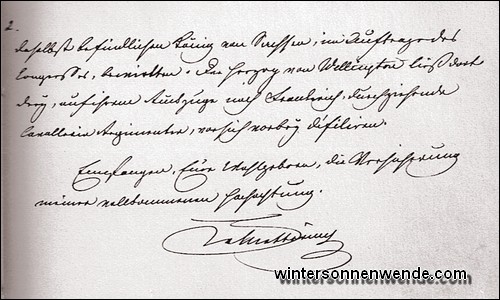 2.
daselbst befindlichen König von Sachsen, im Auftrage des
Congresses, bereisten. Der Herzog von Wellington ließ dort
drey, auf ihrem Auszuge nach Frankreich, durchziehende
Cavallerie Regimenter, vor sich vorbey defiliren.
Empfangen, Euer Wohlgeboren, die Versicherung
meiner vollkommenen Hochachtung.
wintersonnenwende.com